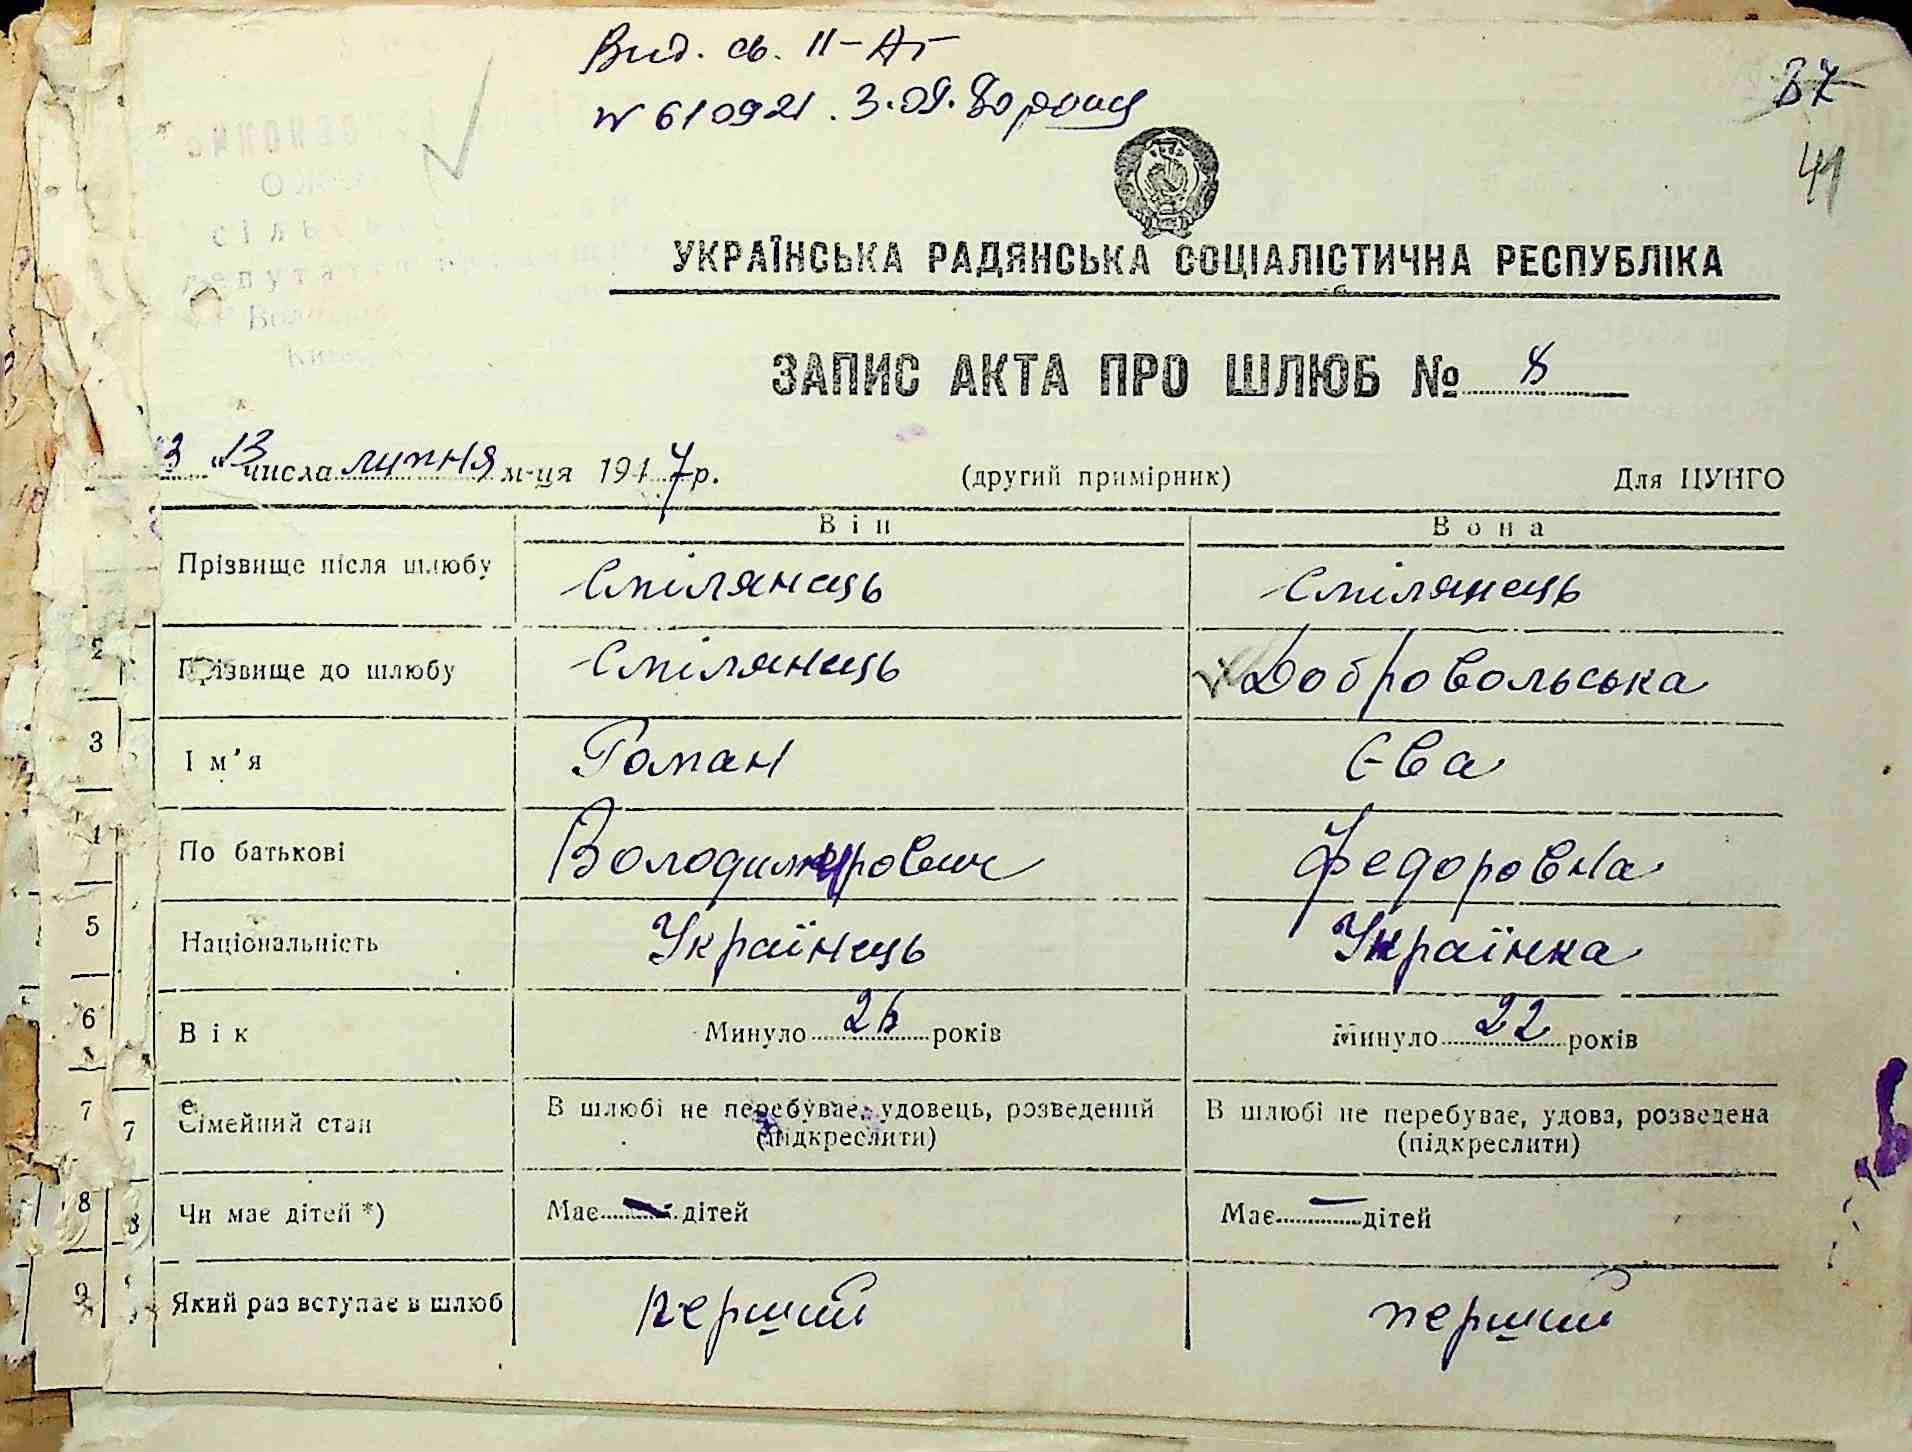 Вид. св. II-АГ
N 610921. 3.09.
37
41
УКРАЇНСЬКА РАДЯНСЬКА СОЦІАЛІСТИЧНА РЕСПУБЛІКА
ЗАПИС АКТА ПРО ШЛЮБ № 8
"13 числа липня м-ця 1947р. (другий примірник) Для ЦУНГО
Він Вона
Прізвище після шлюбу Смілянець Смілянець
2 Прізвище до шлюбу Смілянець Добровольська
3 Ім'я Роман Єва
4 По батькові Володимирович Федоровна
5 Національність Українець Українка
6 Вік Минуло 26 років Минуло 22 років
7 7 Сімейний стан В шлюбі не перебуває, удовець, розведений В шлюбі не перебуває, удова, розведена
(підкреслити) (підкреслити)
8 8 Чи має дітей *) Має — дітей Має — дітей
9 Який раз вступає в шлюб перший перший